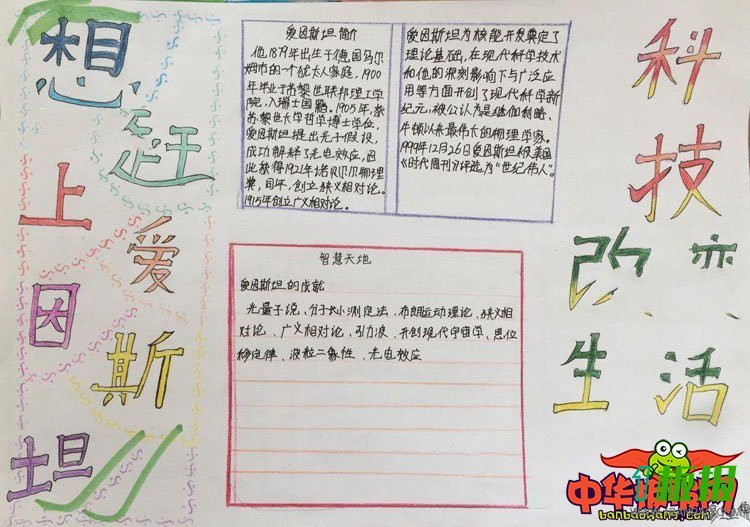 想赶
上爱
因斯
坦
爱因斯坦简介
他1879年出生于德国乌尔
姆市的一个犹太人家庭,1900
年毕业于苏黎世联邦理工学
院,入瑞士国籍。1905年,获
苏黎世大学哲学博士学位,
爱因斯坦提出光子假设,
成功解释了光电效应,因
此获得1921年诺贝尔尔物理
奖,同年,创立狭义相对论。
1915年创立广义相对论。
爱因斯坦为核能开发奠定了
理论基础,在现代科学技术
和他的深刻影响下与广泛应
用等方面开创了现代科学新
纪元,被公认为是继伽利略、
牛顿以来最伟大的物理学家。
1999年12月26日爱因斯坦被美国
《时代周刊》评选为“世纪伟人”。
智慧天地
爱因斯坦的成就
光量子说、分子大小测定法、布朗运动理论、狭义相
对论、广义相对论、引力波、开创现代宇宙学、恩位
移定律、波粒二象性、光电效应
科
技
改变
生活
中华板报网
banbaowang.com